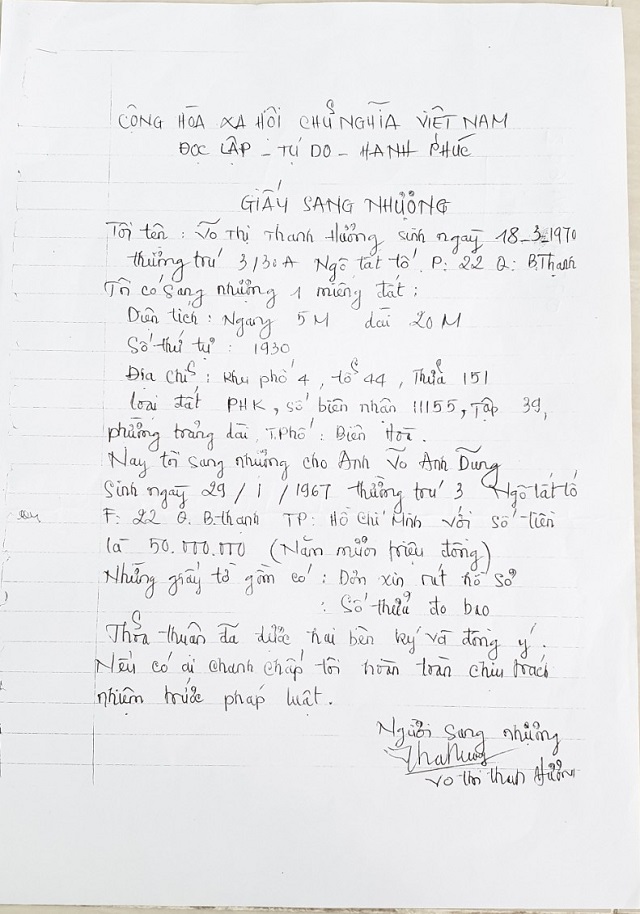 CÔNG HÒA XA HÔI CHỦ NGHĨA VIỆT NAM
ĐỌC LẬP - TỰ DO - HANH PHÚC
GIẤY SANG NHƯỢNG
Tôi tên : Võ Thị Thanh Hưởng sinh ngaỳ 18-3-1970
thường trú 3/30A Ngô tất tố. P: 22 Q: B.Thạnh
Tô có sang nhượng 1 miếng đất :
Diên tích : Ngang 5M dài 20M
Số thứ tự : 1930
Địa chỉ : khu phố 4, tổ 44, Thửa 151
loại đất PHK, số biên nhân 11155, Tập 39,
phường trảng dài, T.Phố : Biên Hoà.
Nay tôi sang nhượng cho Anh Võ Anh Dũng
Sinh ngaỳ 29 / 1 / 1967 thường trú 3 Ngô tất tố
F: 22 Q. B-thạnh TP: Hồ Chí Minh với số tiền
là 50.000.000 (Năm mươi triệu đồng)
Những giấy tờ gồm có : Đơn xin rút hồ sơ
: Số thửa đo bao
Thỏa thuân đã được hai bên ký và đồng ý.
Nếu có ai chanh chấp tôi hoàn toàn chiu trách
nhiệm trước pháp luật.
Người sang nhượng
Võ thi thanh Hưởng